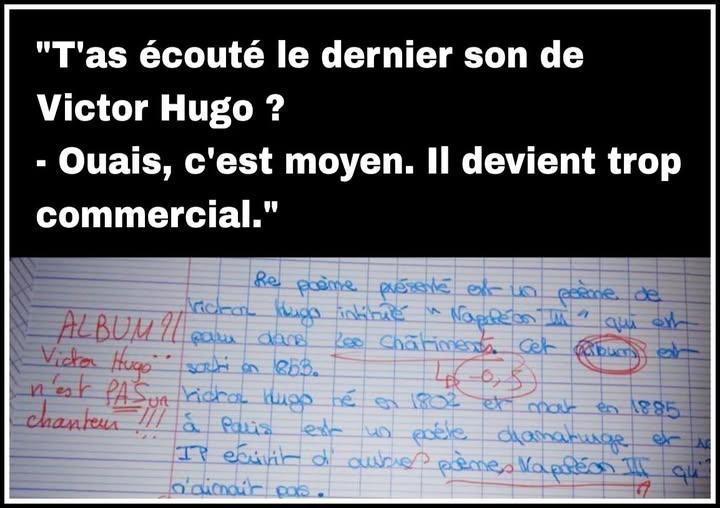 "T'as écouté le dernier son de
Victor Hugo ?
- Ouais, c'est moyen. Il devient trop
commercial."
Le poème présenté est un poème de
Victor Hugo intitulé "Napoléon III" qui est
paru dans Les Châtiments. Cet album est
sorti en 1853.
ALBUM ?!
Victor Hugo
n'est PAS un
chanteur !!!
-0,5
Victor Hugo né en 1802 et mort en 1885
à Paris est un poète dramaturge et
Il écrivit d'autres poèmes Napoléon III qu'
n'aimait pas.